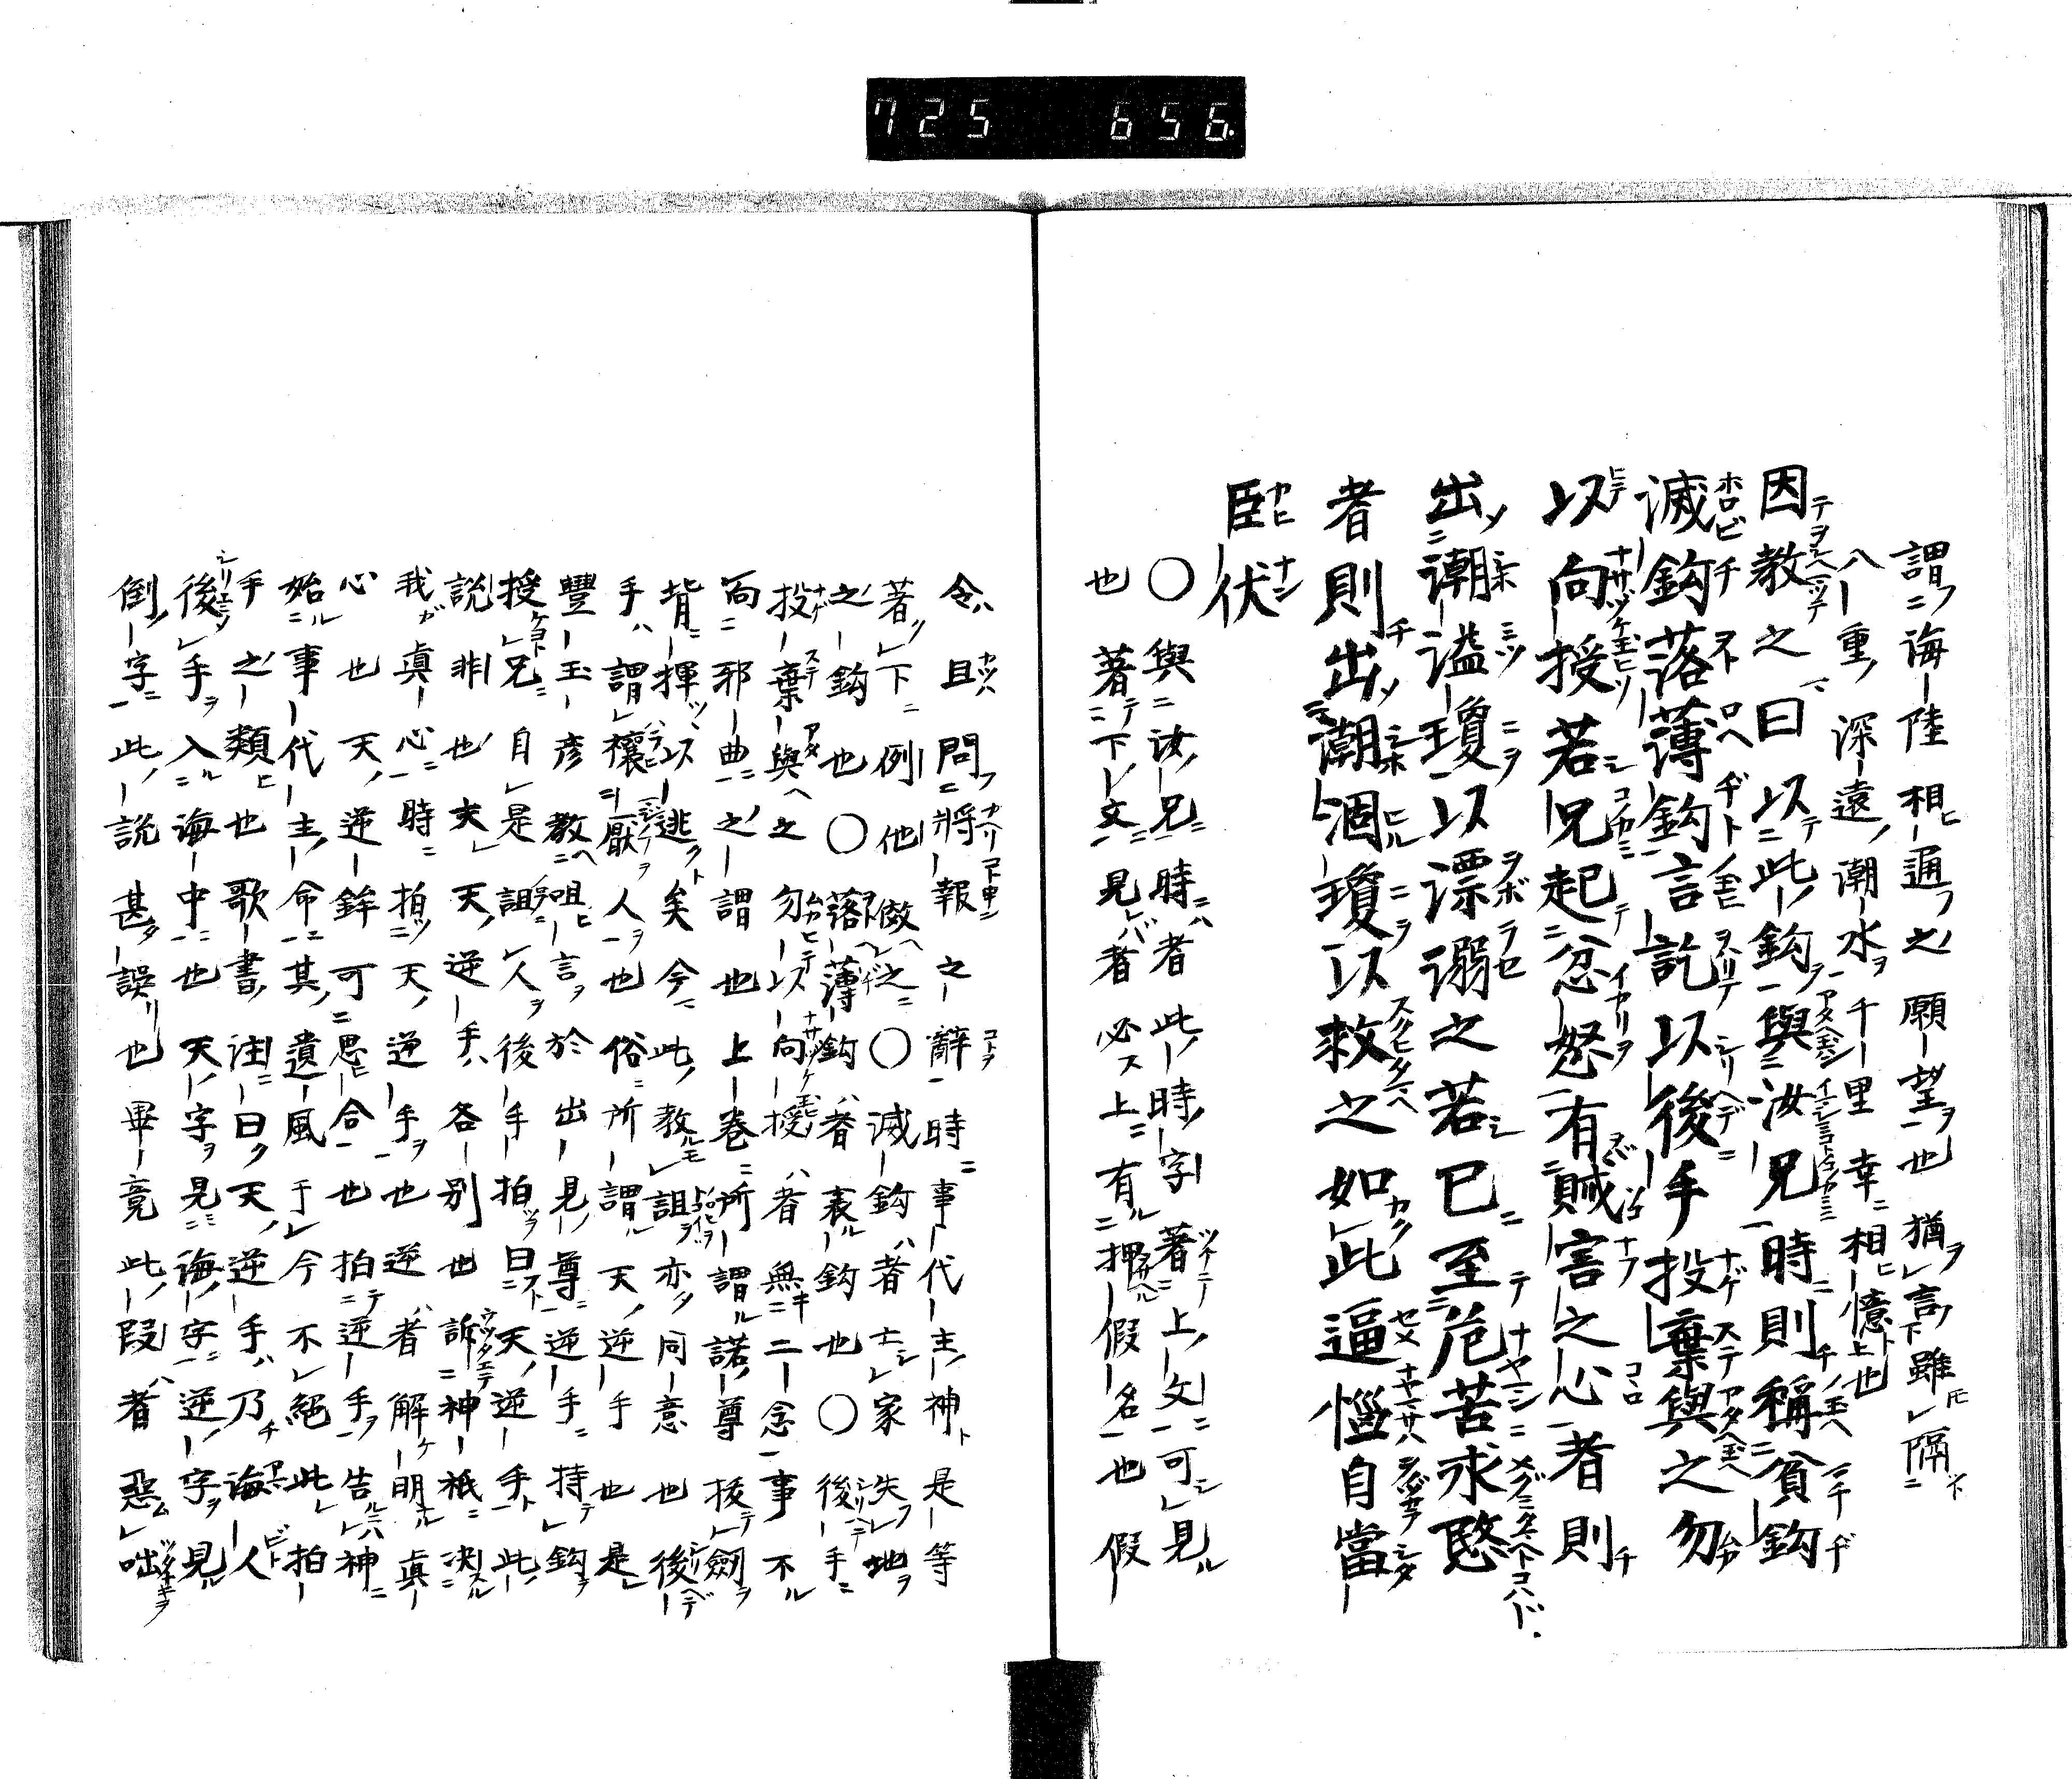 725 656.
謂海陸相通之願望也猶言雖隔
八重深遠潮水千里幸相憶也
因教之曰以此鈎與汝兄時則稱貧鈎
滅鈎落薄鈎言訖以後手投棄與之勿
以向授若兄起忿怒有賊害之心者則
出潮溢瓊以漂溺之若已至危苦求愍
者則出潮涸瓊以救之如此逼惱自當
臣伏
〇與汝兄時者此時字著上文可見
也著下文見者必上有押假名也假
令且問將報之辭時事代主神是等
著下例他倣之〇滅鈎者士家失地
之鈎也〇落薄鈎者表鈎也〇後手
投棄與之勿以向授者無二念事不
向邪曲之謂也上卷所謂諾尊拔劍後
背揮以逃矣今此教詛亦同意也後
手謂禳厭人也俗所謂天逆手也是
豐玉彦教咀言於出見尊逆手持鈎
授兄自是詛人後手拍曰天逆手此
説非也夫天逆手各別也訴神祇決
我眞心時拍天逆手也逆者解明眞
心也天逆鉾可思合也拍逆手告神
始事代主命其遺風于今不絕此拍
手之類也歌書注曰天逆手乃海人
後手入海中也天字見海字逆字見
倒字此説甚誤也畢竟此段者惡咄